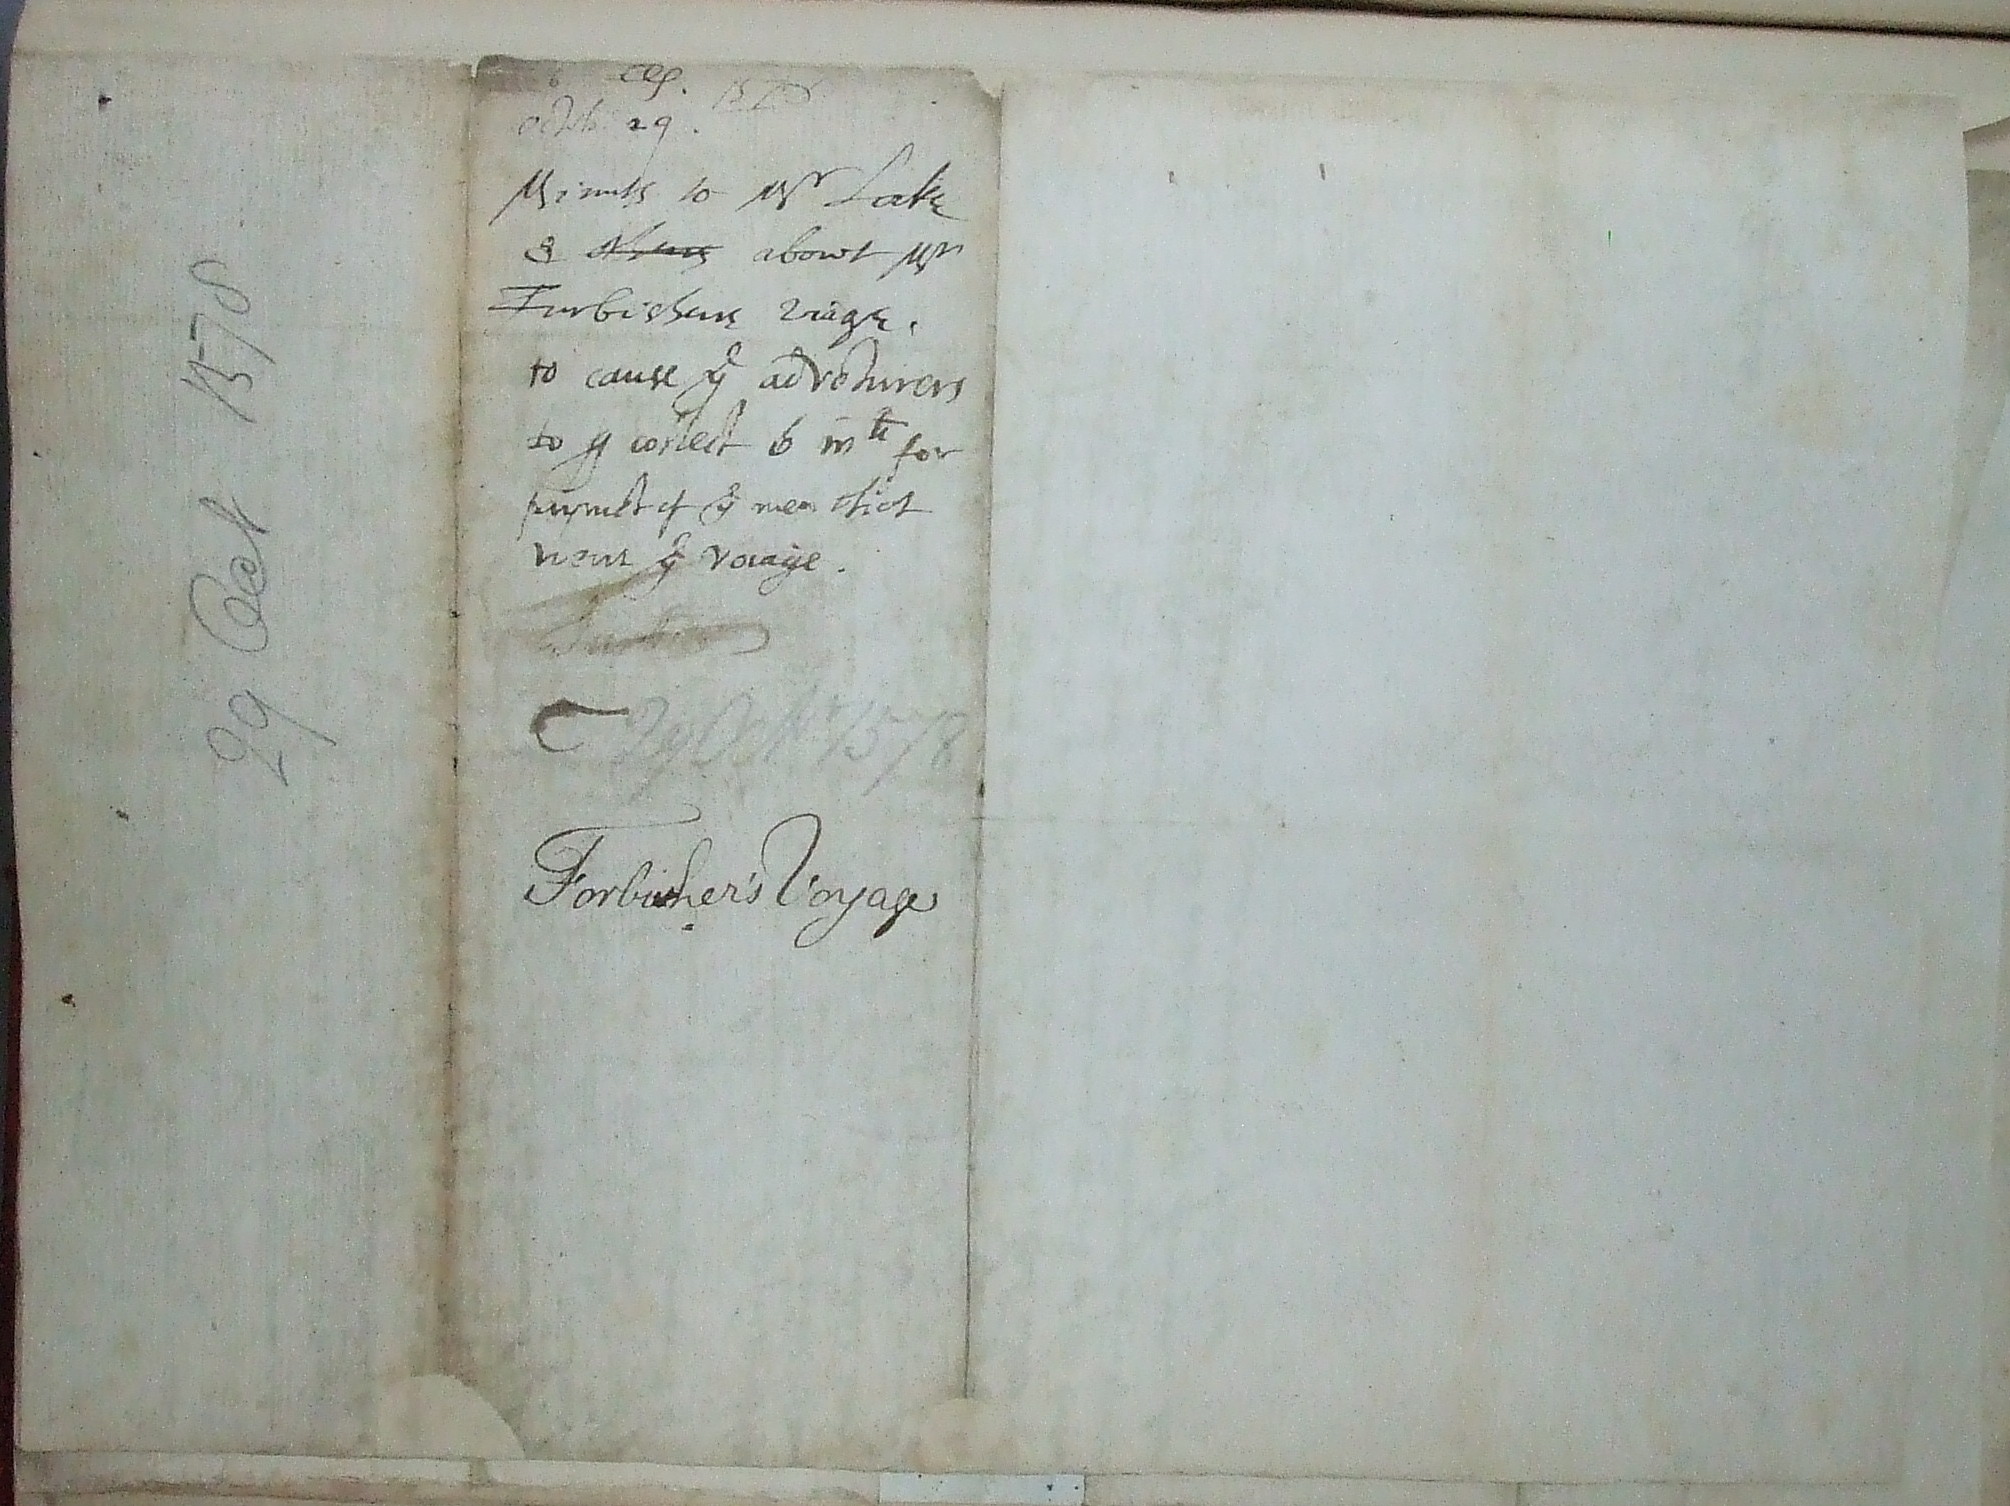 Octob: 29. 1578
Minute to Mr Lok
& about Mr
Furbishers viage.
to cause ye adventurers
to collect 6 mli for
payment of ye men that
went ye voiage.
29 Octr 1578
Forbisher's Voyage
29 Oct 1578